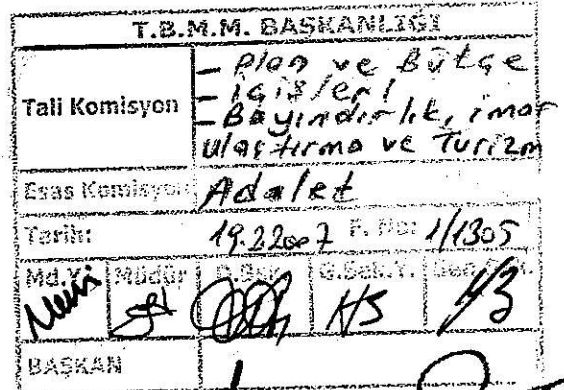 T.B.M.M. BAŞKANLIĞI
Tali Komisyon
- Plan ve Bütçe
- içişleri
- Bayındırlık, imar
ulaştırma ve Turizm
Esas Komisyon Adalet
Tarih: 19.2.2007 E. No: 1/1305
Md.Y. Müdür G.Sek.Y.
BAŞKAN